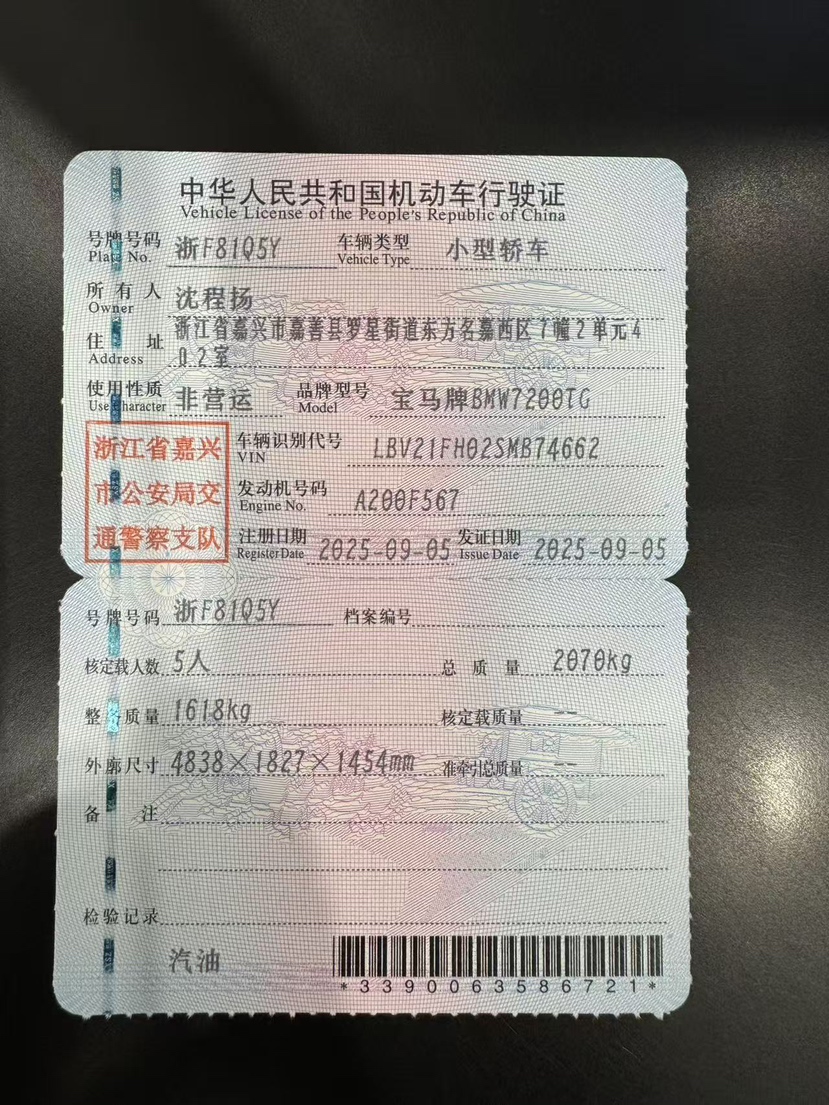 中华人民共和国机动车行驶证
Vehicle License of the People's Republic of China
号牌号码 浙F81Q5Y 车辆类型 小型轿车
Plate No. Vehicle Type
所有人 沈程扬
Owner
住址 浙江省嘉兴市嘉善县罗星街道东方名嘉西区7幢2单元4
Address 02室
使用性质 非营运 品牌型号 宝马牌BMW7200TG
Use Character Model
浙江省嘉兴
市公安局交
通警察支队
车辆识别代号 LBV21FH02SMB74662
VIN
发动机号码 A200F567
Engine No.
注册日期 2025-09-05 发证日期 2025-09-05
Register Date Issue Date
号牌号码 浙F81Q5Y 档案编号
核定载人数 5人 总质量 2070kg
整备质量 1618kg 核定载质量 --
外廓尺寸 4838×1827×1454mm 准牵引总质量 --
备注
检验记录
汽油
*3390063586721*